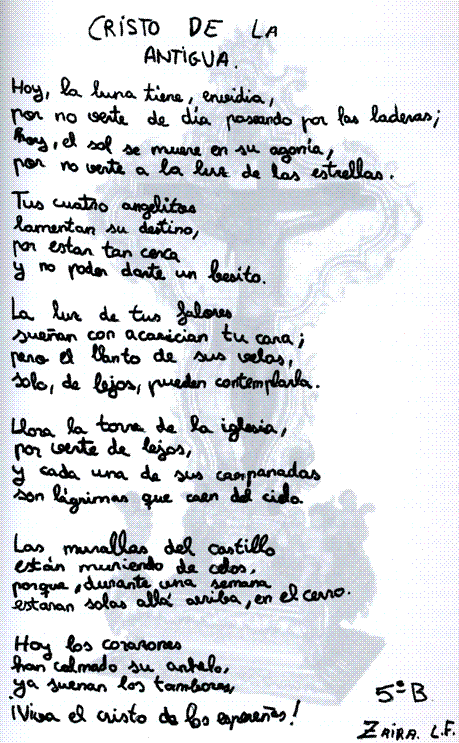 CRISTO DE LA
ANTIGUA.
Hoy, la luna tiene, envidia,
por no verte de día paseando por las laderas;
hoy, el sol se muere en su agonía,
por no verte a la luz de las estrellas.
Tus cuatro angelitos
lamentan su destino,
por estar tan cerca
y no poder darte un besito.
La luz de tus falores
sueñan con acarician tu cara;
pero el llanto de sus velas,
solo, de lejos, pueden contemplarla.
Llora la torre de la iglesia,
por verte de lejos,
y cada una de sus campanadas
son lágrimas que caen del cielo
Las murallas del castillo
están muriendo de celos,
porque, durante una semana
estaran solas allá arriba, en el cerro.
Hoy los corazones
han calmado su anhelo,
ya suenan los tambores,
¡Viva el cristo de los espereños!
5º B
ZAIRA. L.F.